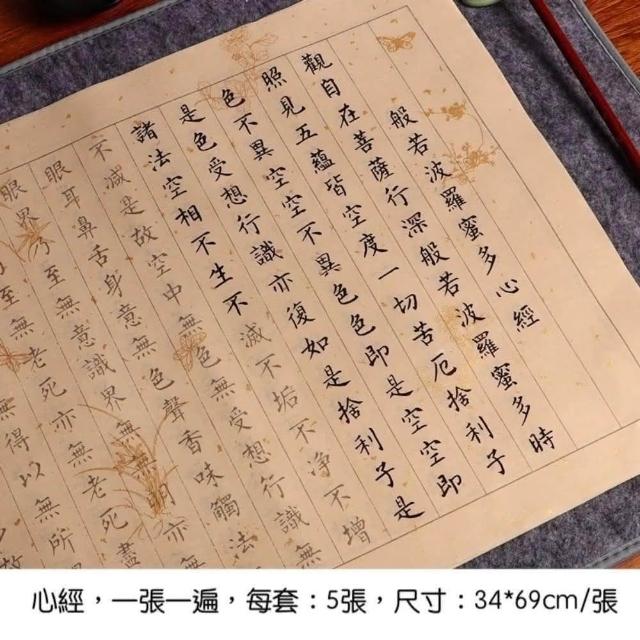 般若波羅蜜多心經
觀自在菩薩行深般若波羅蜜多時
照見五蘊皆空度一切苦厄捨利子
色不異空空不異色色即是空空即
是色受想行識亦復如是捨利子是
諸法空相不生不滅不垢不净不增
不減是故空中無色無受想行識無
眼耳鼻舌身意無色聲香味觸法
眼界乃至無意識界無明亦
至無老死亦無老死盡
無得以無所
故
心經，一張一遍，每套：5張，尺寸：34*69cm/張